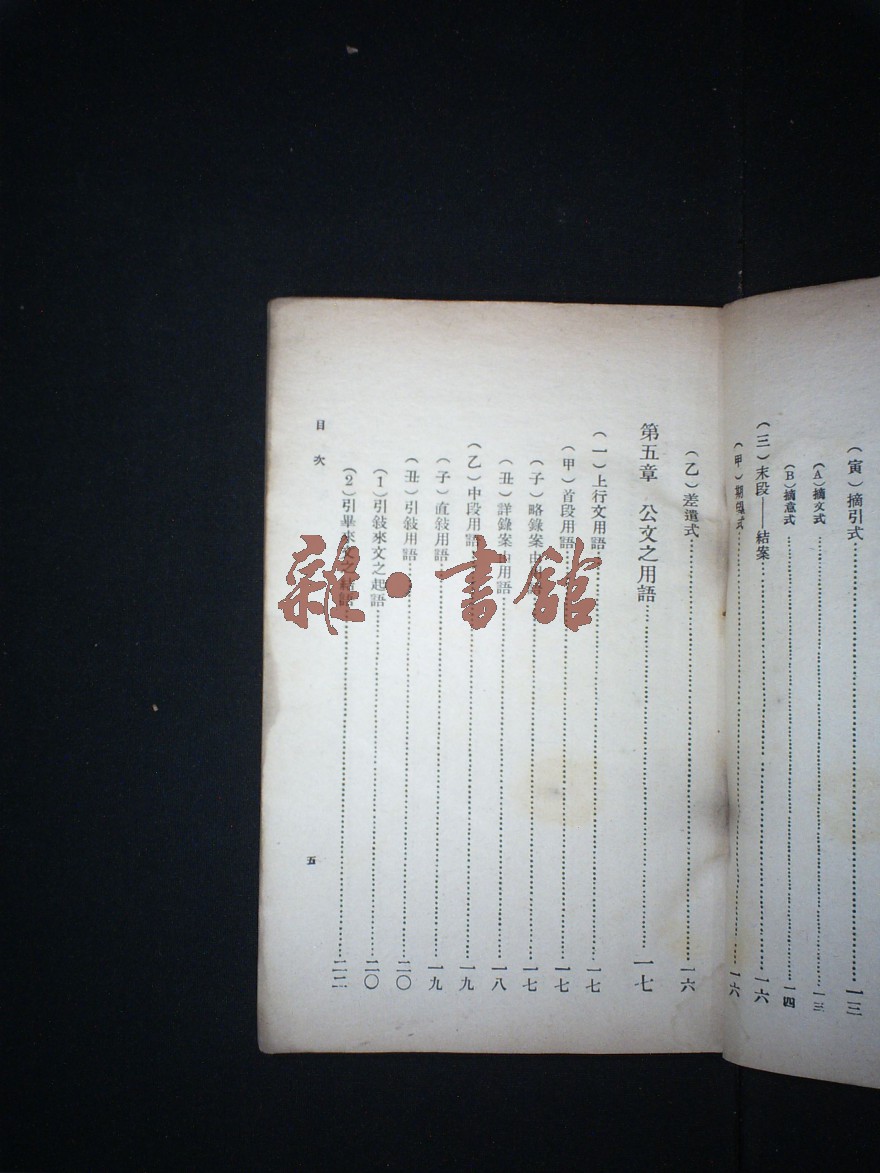 （寅）摘引式……一三
（A）摘文式……一三
（B）摘意式……一四
（三）末段——結案……一六
（甲）期勉式……一六
（乙）差遣式……一六
第五章　公文之用語……一七
（一）上行文用語……一七
（甲）首段用語……一七
（子）略錄案由用語……一七
（丑）詳錄案由用語……一八
（乙）中段用語……一九
（子）直敍用語……一九
（丑）引敍用語……二〇
（1）引敍來文之起語……二〇
（2）引畢來文之結語……二二
目次
五
雜·書館